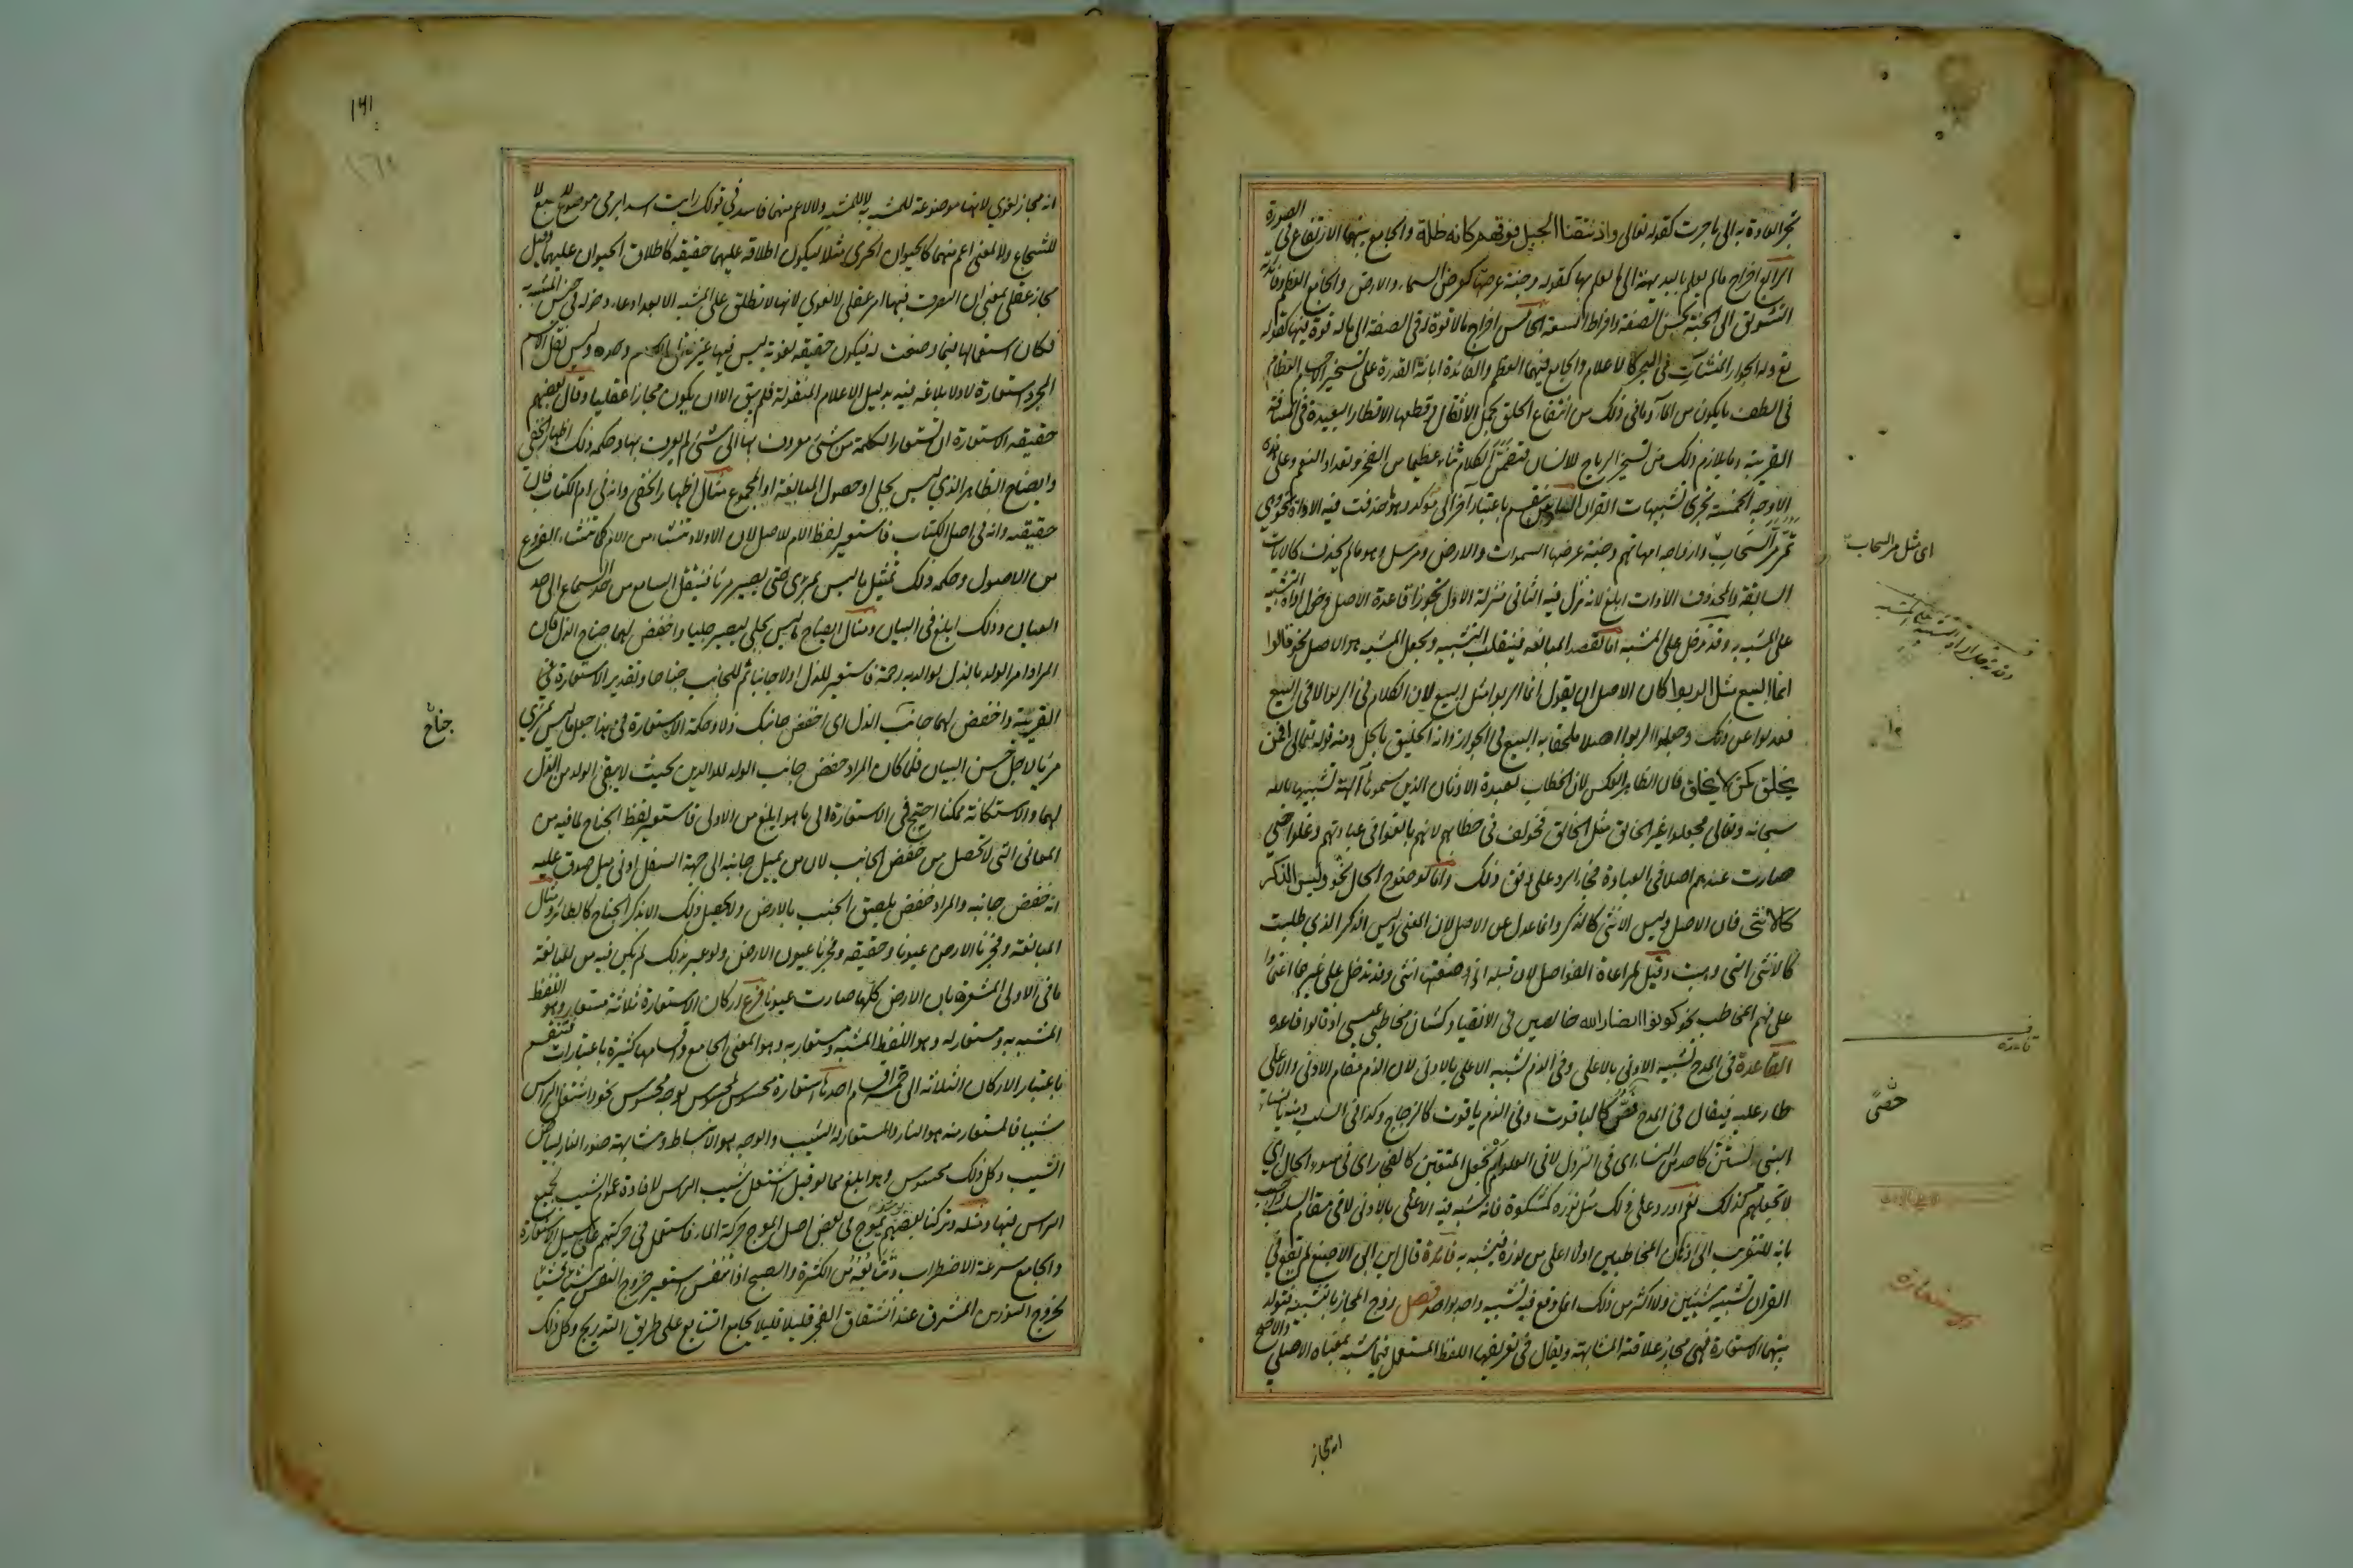 تجر العادة به الى ما جرت كقوله تعالى واذ نتقنا الجبل فوقهم كانه ظلة والجامع بينهما الارتفاع في الصورة
الرابع اخراج ما لم يعلم بالبديهة الى ما يعلم بها كقوله وجنة عرضها كعرض السماء والارض والجامع العظم وفائدته
التشويق الى الجنة بحسن الصفة وافراط السعة الخامس اخراج ما لا قوة له في الصفة الى ما له قوة فيها كقوله
تع وله الجوار المنشآت في البحر كالاعلام والجامع فيهما العظم والفائدة ابانة القدرة على تسخير الاجسام العظام
في الطف ما يكون من الماء وما في ذلك من انتفاع الخلق بحمل الاثقال وقطعها الاقطار البعيدة في المسافة
القريبة وما يلازم ذلك من تسخير الرياح للانسان فتضمن الكلام نباء عظيما من الفخر وتعداد النعم وعلى هذه
الاوجه الخمسة تجرى تشبيهات القران السادس ينقسم باعتبار آخر الى مؤكد وهو ما حذفت فيه الاداة نحو وهي
تمر مر السحاب وازواجه امهاتهم وجنة عرضها السموات والارض ومرسل وهو ما لم يحذف كالآيات
السابقة والمحذوف الاداة ابلغ لانه نزل فيه الثاني منزلة الاول تجوزا قاعدة الاصل دخول اداة التشبيه
على المشبه به وقد تدخل على المشبه اما لقصد المبالغة فينقلب التشبيه ويجعل المشبه هو الاصل نحو قالوا
انما البيع مثل الربوا كان الاصل ان يقول انما الربوا مثل البيع لان الكلام في الربوا لا في البيع
فعدلوا عن ذلك وجعلوا الربوا اصلا ملحقا به البيع في الجواز وانه الخليق بالحل ومنه قوله تعالى افمن
يخلق كمن لا يخلق فان الظاهر العكس لان الخطاب لعبدة الاوثان الذين سموها آلهة تشبيها بالله
سبحانه وتعالى فجعلوا غير الخالق مثل الخالق فخولف في خطابهم لانهم بالغوا في عبادتهم وغلوا حتى
صارت عندهم اصلا في العبادة فجاء الرد على وفق ذلك واما لوضوح الحال نحو وليس الذكر
كالانثى فان الاصل وليس الانثى كالذكر وانما عدل عن الاصل لان المعنى وليس الذكر الذي طلبت
كالانثى التى وهبت وقيل لمراعاة الفواصل لان قبله اني وضعتها انثى وقد تدخل على غيرهما اعتمادا
على فهم المخاطب نحو كونوا انصار الله خالصين في الانقياد كشان مخاطبي عيسى اذ قالوا قاعدة
القاعدة في المدح تشبيه الادنى بالاعلى وفي الذم تشبيه الاعلى بالادنى لان الذم مقام الادنى والاعلى
طار عليه فيقال في المدح فص كالياقوت وفي الذم ياقوت كالزجاج وكذا في السلب ومنه يا نساء
النبى لستن كاحد من النساء اى في النزول لا في العلو ام نجعل المتقين كالفجار اى في سوء الحال اى
لا نجعلهم كذلك نعم اورد على ذلك مثل نوره كمشكوة فانه شبه فيه الاعلى بالادنى لا في مقام السلب واجيب
بانه للتقريب الى اذهان المخاطبين اذ لا اعلى من نوره فيشبه به فائدة قال ابن ابى الاصبع لم يقع في
القران تشبيه شيئين بشيئين ولا اكثر من ذلك انما وقع فيه تشبيه واحد بواحد فصل زوج المجاز بالتشبيه فتولد
بينهما الاستعارة فهى مجاز علاقته المشابهة ويقال في تعريفها اللفظ المستعمل فيما شبه بمعناه الاصلي والاصح
انه مجاز
اى مثل مر السحاب
قاعدة
حصى
استعارة
١٦١
انه مجاز لغوي لانها موضوعة للمشبه به لا للمشبه ولا لاعم منهما فاسد في قولك رايت اسدا يرمى موضوع للسبع لا
للشجاع ولا لمعنى اعم منهما كالحيوان الجرى مثلا ليكون اطلاقه عليهما حقيقة كاطلاق الحيوان عليهما وقيل
مجاز عقلى بمعنى ان التصرف فيها امر عقلى لا لغوي لانها لا تطلق على المشبه الا بعد ادعاء دخوله في جنس المشبه به
فكان استعمالها فيما وضعت له فيكون حقيقة لغوية ليس فيها غير نقل الاسم وحده وليس نقل الاسم
المجرد استعارة لانه لا بلاغة فيه بدليل الاعلام المنقولة فلم يبق الا ان يكون مجازا عقليا وقال بعضهم
حقيقة الاستعارة ان تستعار الكلمة من شىء معروف بها الى شىء لم يعرف بها وحكمة ذلك اظهار الخفى
وايضاح الظاهر الذي ليس بجلى او حصول المبالغة او المجموع مثال اظهار الخفى وانه في ام الكتاب فان
حقيقته وانه في اصل الكتاب فاستعير لفظ الام للاصل لان الاولاد تنشاء من الام كما تنشاء الفروع
من الاصول وحكمة ذلك تمثيل ما ليس بمرئ حتى يصير مرئيا فينتقل السامع من حد السماع الى حد
العيان وذلك ابلغ في البيان ومثال ايضاح ما ليس بجلى ليصير جليا واخفض لهما جناح الذل فان
المراد امر الولد بالذل لوالديه رحمة فاستعير للذل اولا جانبا ثم للجانب جناحا وتقدير الاستعارة في
القريبة واخفض لهما جانب الذل اى اخفض جانبك ذلا وحكمة الاستعارة في هذا جعل ما ليس بمرئ
مرئيا لاجل حسن البيان فلما كان المراد خفض جانب الولد للوالدين بحيث لا يبقى الولد من الذل
لهما والاستكانة ممكنا احتيج في الاستعارة الى ما هو ابلغ من الاولى فاستعير لفظ الجناح لما فيه من
المعانى التى لا تحصل من خفض الجانب لان من يميل جانبه الى جهة السفل ادنى ميل صدق عليه
انه خفض جانبه والمراد خفض يلصق الجنب بالارض ولا يحصل ذلك الا بذكر الجناح كالطائر ومثال
المبالغة وفجرنا الارض عيونا وحقيقته وفجرنا عيون الارض ولو عبر بذلك لم يكن فيه من المبالغة
ما في الاولى المشعرة بان الارض كلها صارت عيونا فرع اركان الاستعارة ثلاثة مستعار وهو اللفظ
المشبه به ومستعار له وهو اللفظ المشبه ومستعار به وهو المعنى الجامع واقسامها كثيرة باعتبارات فتنقسم
باعتبار الاركان الثلاثة الى خمسة اقسام احدها استعارة محسوس لمحسوس بوجه محسوس نحو واشتعل الراس
شيبا فالمستعار منه هو النار والمستعار له الشيب والوجه هو الانبساط ومشابهة ضوء النار لبياض
الشيب وكل ذلك محسوس وهو ابلغ مما لو قيل اشتعل شيب الراس لافادة عموم الشيب لجميع
الراس فيها ومثله وتركنا بعضهم يومئذ يموج في بعض اصل الموج حركة الماء فاستعمل في حركتهم على سبيل الاستعارة
والجامع سرعة الاضطراب وتتابعه في الكثرة والصبح اذا تنفس استعير خروج النفس شيئا فشيئا
لخروج النور من المشرق عند انشقاق الفجر قليلا قليلا بجامع التتابع على طريق التدريج وكل ذلك
جناح